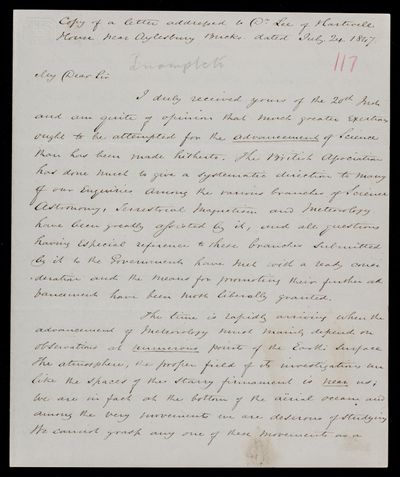 Copy of a letter addressed to Dr Lee of Hartwell
House near Aylesbury Bucks. dated July 24. 1847
Incomplete
117
My Dear Sir
I duly received yours of the 20th Inst.
and am quite of opinion that much greater exertions
ought to be attempted for the advancement of Science
than has been made hitherto. The British Association
has done much to give a systematic direction to many
of our enquiries among the various branches of Science
Astronomy, Terrestrial Magnetism and Meteorology
have been greatly assisted by it, and all questions
having especial reference to these branches submitted
by it to the Governments have met with a ready consi
deration and the means for promoting their further ad
vancement have been most liberally granted.
The time is rapidly arriving when the
advancement of Meteorology must mainly depend on
observations at numerous points of the Earths surface
The atmosphere, the proper field of its investigations un
like the spaces of the starry firmament is near us;
we are in fact at the bottom of the aërial ocean and
among the very movements we are desirous of studying
We cannot grasp any one of these movements as a